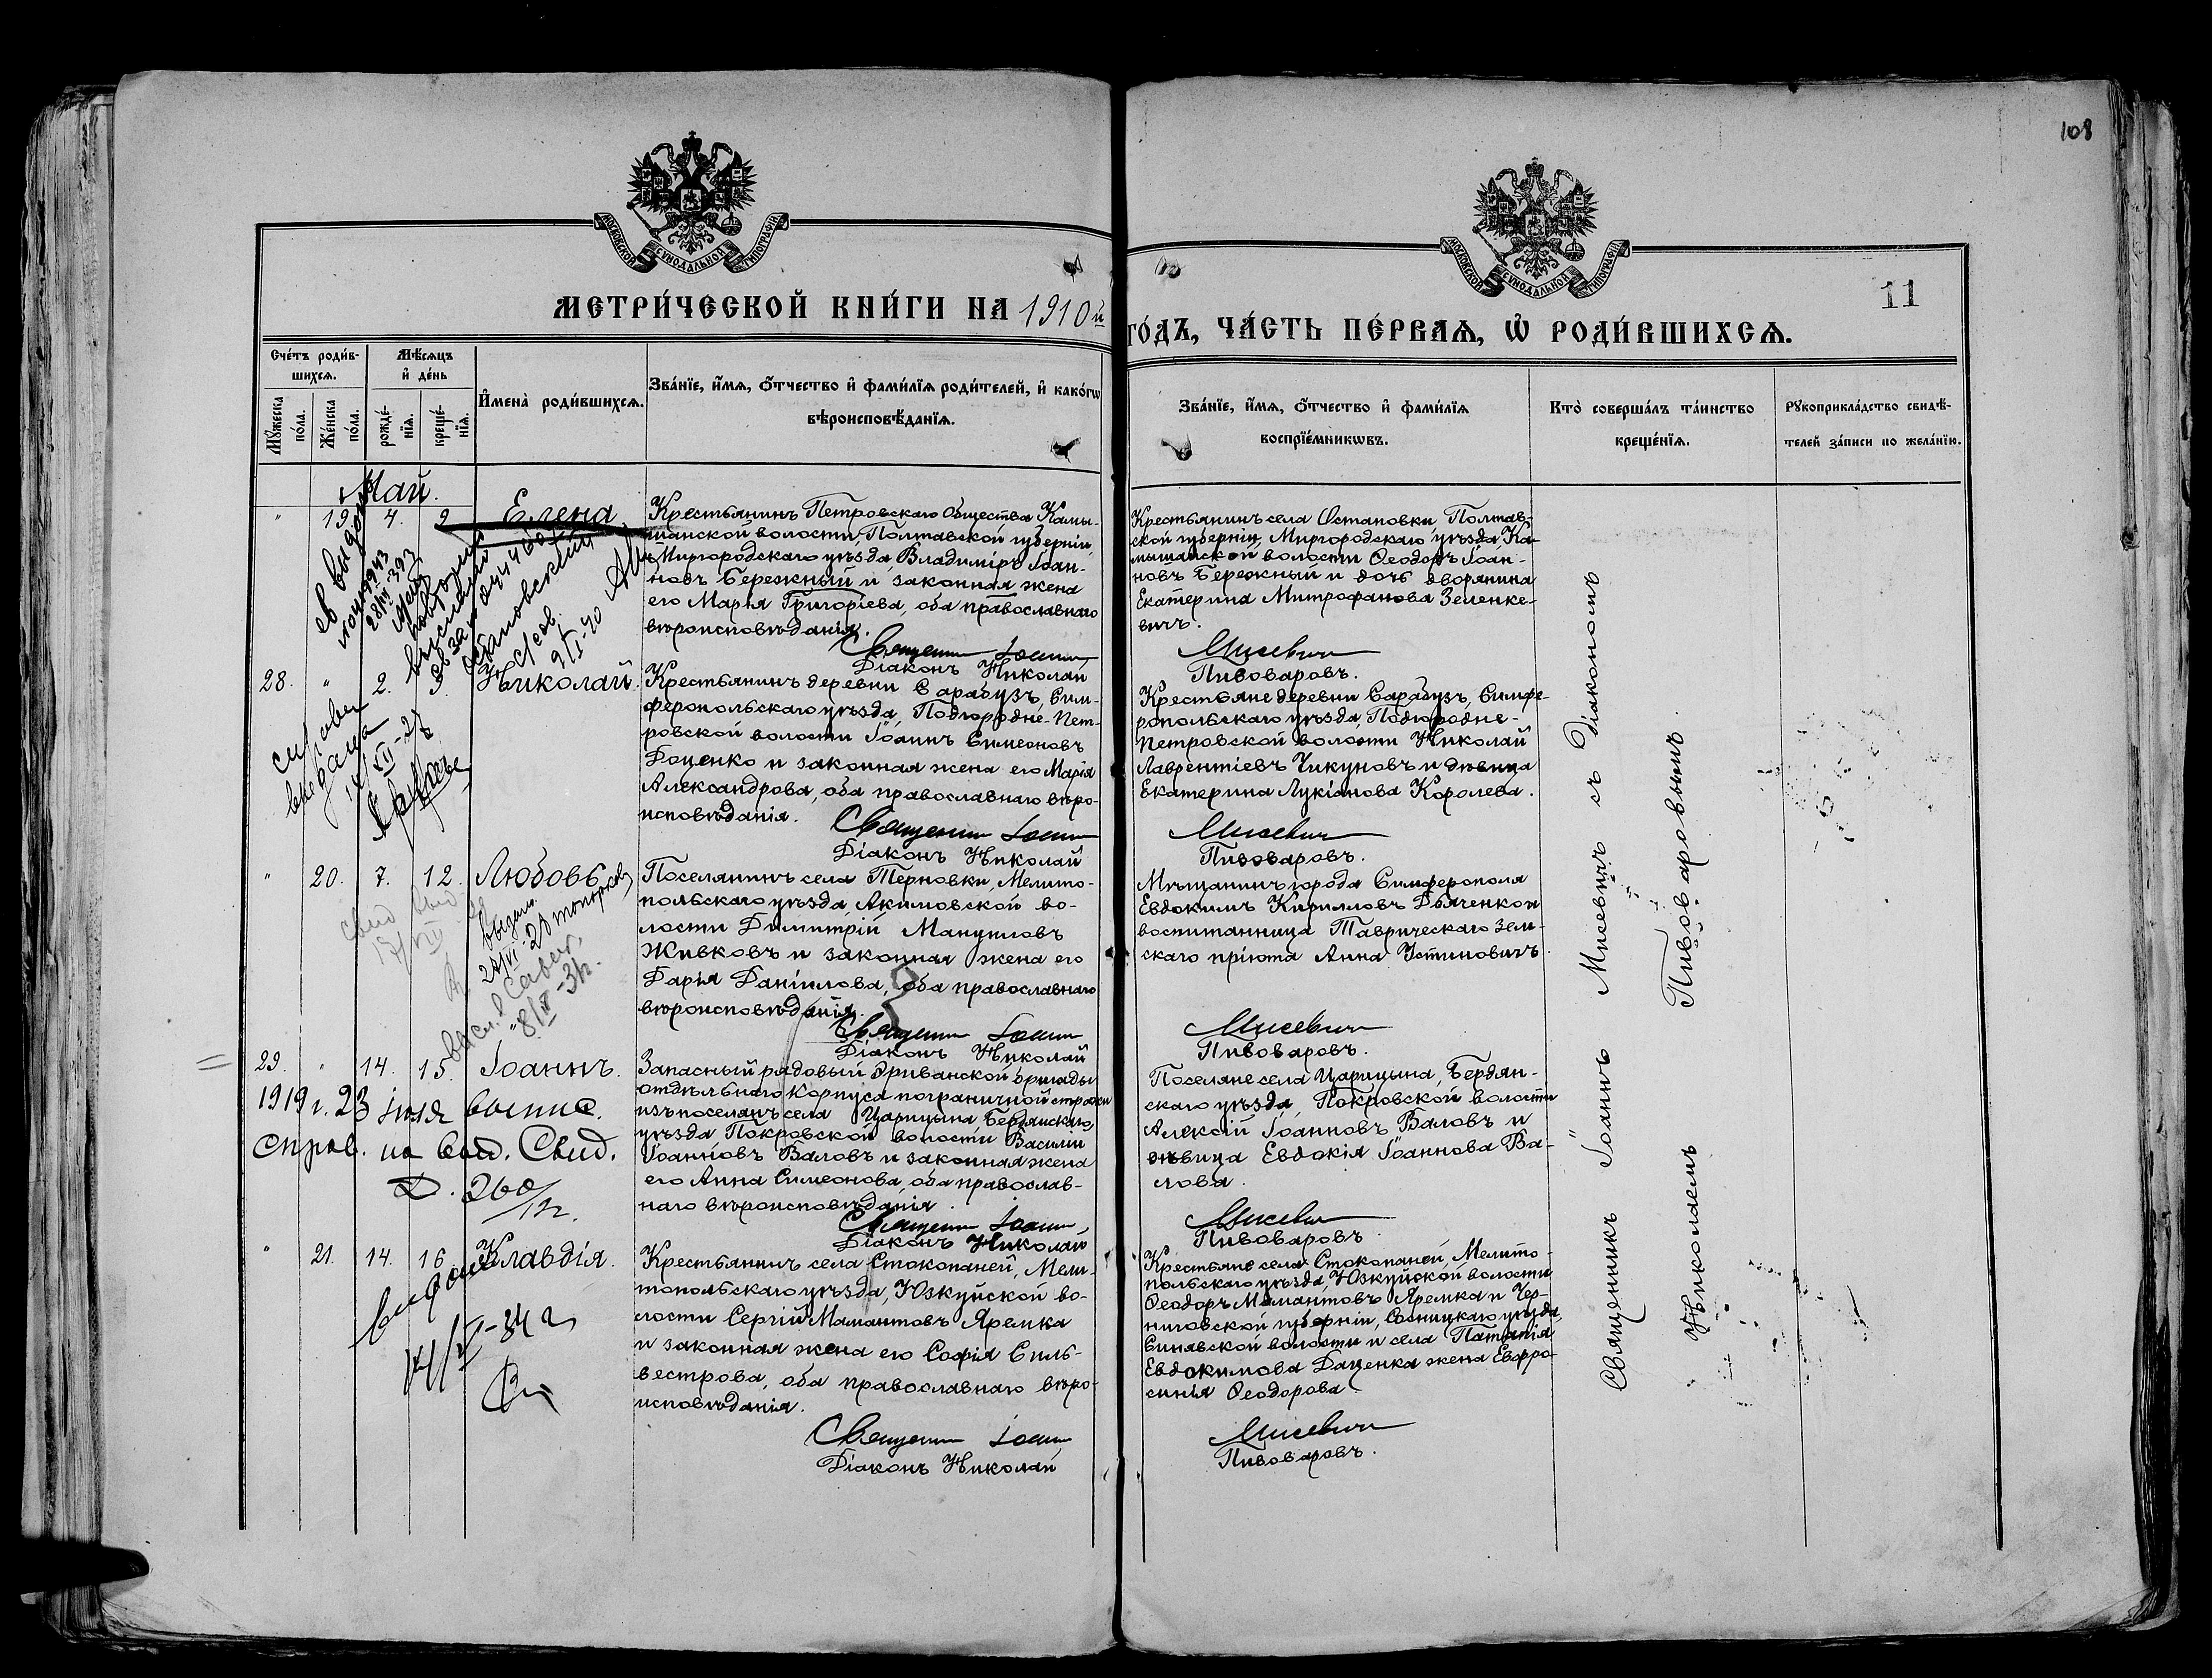 108
МОСКОВСКОЙ СѴНОДАЛЬНОЙ ТИПОГРАФІИ
МОСКОВСКОЙ СѴНОДАЛЬНОЙ ТИПОГРАФІИ
11
МЕТРИ́ЧЕСКОЙ КНИ́ГИ НА 1910й
ГО́ДЪ, ЧА́СТЬ ПЕ́РВАѦ, Ѡ҆ РОДИ́ВШИХСѦ.
Сче́тъ роди́в-
шихсѧ.
Мѣ́сѧцъ
и҆ де́нь
Мꙋ́жеска
по́ла.
Же́нска
по́ла.
рожде́-
нїѧ.
креще́-
нїѧ.
И҆мена̀ роди́вшихсѧ.
Зва́нїе, и҆́мѧ, ѻ҆́тчество и҆ фами́лїѧ роди́телей, и҆ како́гѡ
вѣроисповѣ́данїѧ.
Зва́нїе, и҆́мѧ, ѻ҆́тчество и҆ фами́лїѧ
воспрїе́мникѡвъ.
Кто̀ соверша́лъ та́инство
креще́нїѧ.
Рꙋкоприкла́дство свидѣ́-
телей за́писи по жела́нїю.
Май.
" 19. 4. 9. Елена
Крестьянинъ Петровскаго Общества Камы-
шанской волости, Полтавской губерніи,
Миргородскаго уѣзда, Владиміръ Іоан-
новъ Бережный и законная жена
его Марія Григоріева, оба православнаго
вѣроисповѣданія.
Священ Іоанн
Діаконъ Николай
Крестьянинъ села Остановки Полтав-
ской губерніи, Миргородскаго уѣзда, Ка-
мышанской волости Ѳеодоръ Іоан-
новъ Бережный и дочь дворянина
Екатерина Митрофанова Зеленке-
вичъ.
Мисевич
Пивоваровъ.
28. " 2. 9. Николай.
Крестьянинъ деревни Сарабузъ, Сим-
феропольскаго уѣзда, Подгородне-Пет-
ровской волости Іоаннъ Симеоновъ
Доценко и законная жена его Марія
Александрова, оба православнаго вѣро-
исповѣданія.
Священ Іоанн
Діаконъ Николай
Крестьяне деревни Сарабузъ, Симфе-
ропольскаго уѣзда, Подгородне-
Петровской волости Николай
Лаврентіевъ Чикуновъ и дѣвица
Екатерина Лукіанова Королева.
Мисевич
Пивоваровъ.
" 20. 7. 12. Любовь
Поселянинъ села Терновки, Мелито-
польскаго уѣзда, Акимовской во-
лости Димитрій Мануиловъ
Живковъ и законная жена его
Дарія Даніилова, оба православнаго
вѣроисповѣданія.
Священ Іоанн
Діаконъ Николай
Мѣщанинъ города Симферополя
Евдокимъ Кирилловъ Дьяченко и
воспитанница Таврическаго Зем-
скаго пріюта Анна Устиновичъ.
Мисевич
Пивоваровъ.
29. " 14. 15. Іоаннъ.
1919 г. 23 іюля выпис.
справ. на выд. Свид.
Запасный рядовый Эриванской бригады
отдѣльнаго Корпуса пограничной стражи
изъ поселянъ села Царицына, Бердянскаго
уѣзда, Покровской волости Василій
Іоанновъ Валовъ и законная жена
его Анна Симеонова, оба православ-
наго вѣроисповѣданія.
Священ Іоанн
Діаконъ Николай
Поселяне села Царицына, Бердян-
скаго уѣзда, Покровской волости
Алексій Іоанновъ Валовъ и
дѣвица Евдокія Іоаннова Ва-
лова.
Мисевич
Пивоваровъ.
" 21. 14. 16. Клавдія.
Крестьянинъ села Стокопаней, Мели-
топольскаго уѣзда, Юзкуйской во-
лости Сергій Мамантовъ Яремка
и законная жена его Софія Силь-
вестрова, оба православнаго вѣро-
исповѣданія.
Священ Іоанн
Діаконъ Николай
Крестьяне села Стокопаней, Мелито-
польскаго уѣзда, Юзкуйской волости
Ѳеодоръ Мамантовъ Яремка и Чер-
ниговской губерніи, Сосницкаго уѣзда,
Синявской волости и села Патапія
Евдокимова Даценка жена Евфро-
синія Ѳеодорова.
Мисевич
Пивоваровъ.
Священникъ Іоаннъ Мисевичъ съ Діакономъ
Николаемъ Пивоваровымъ.